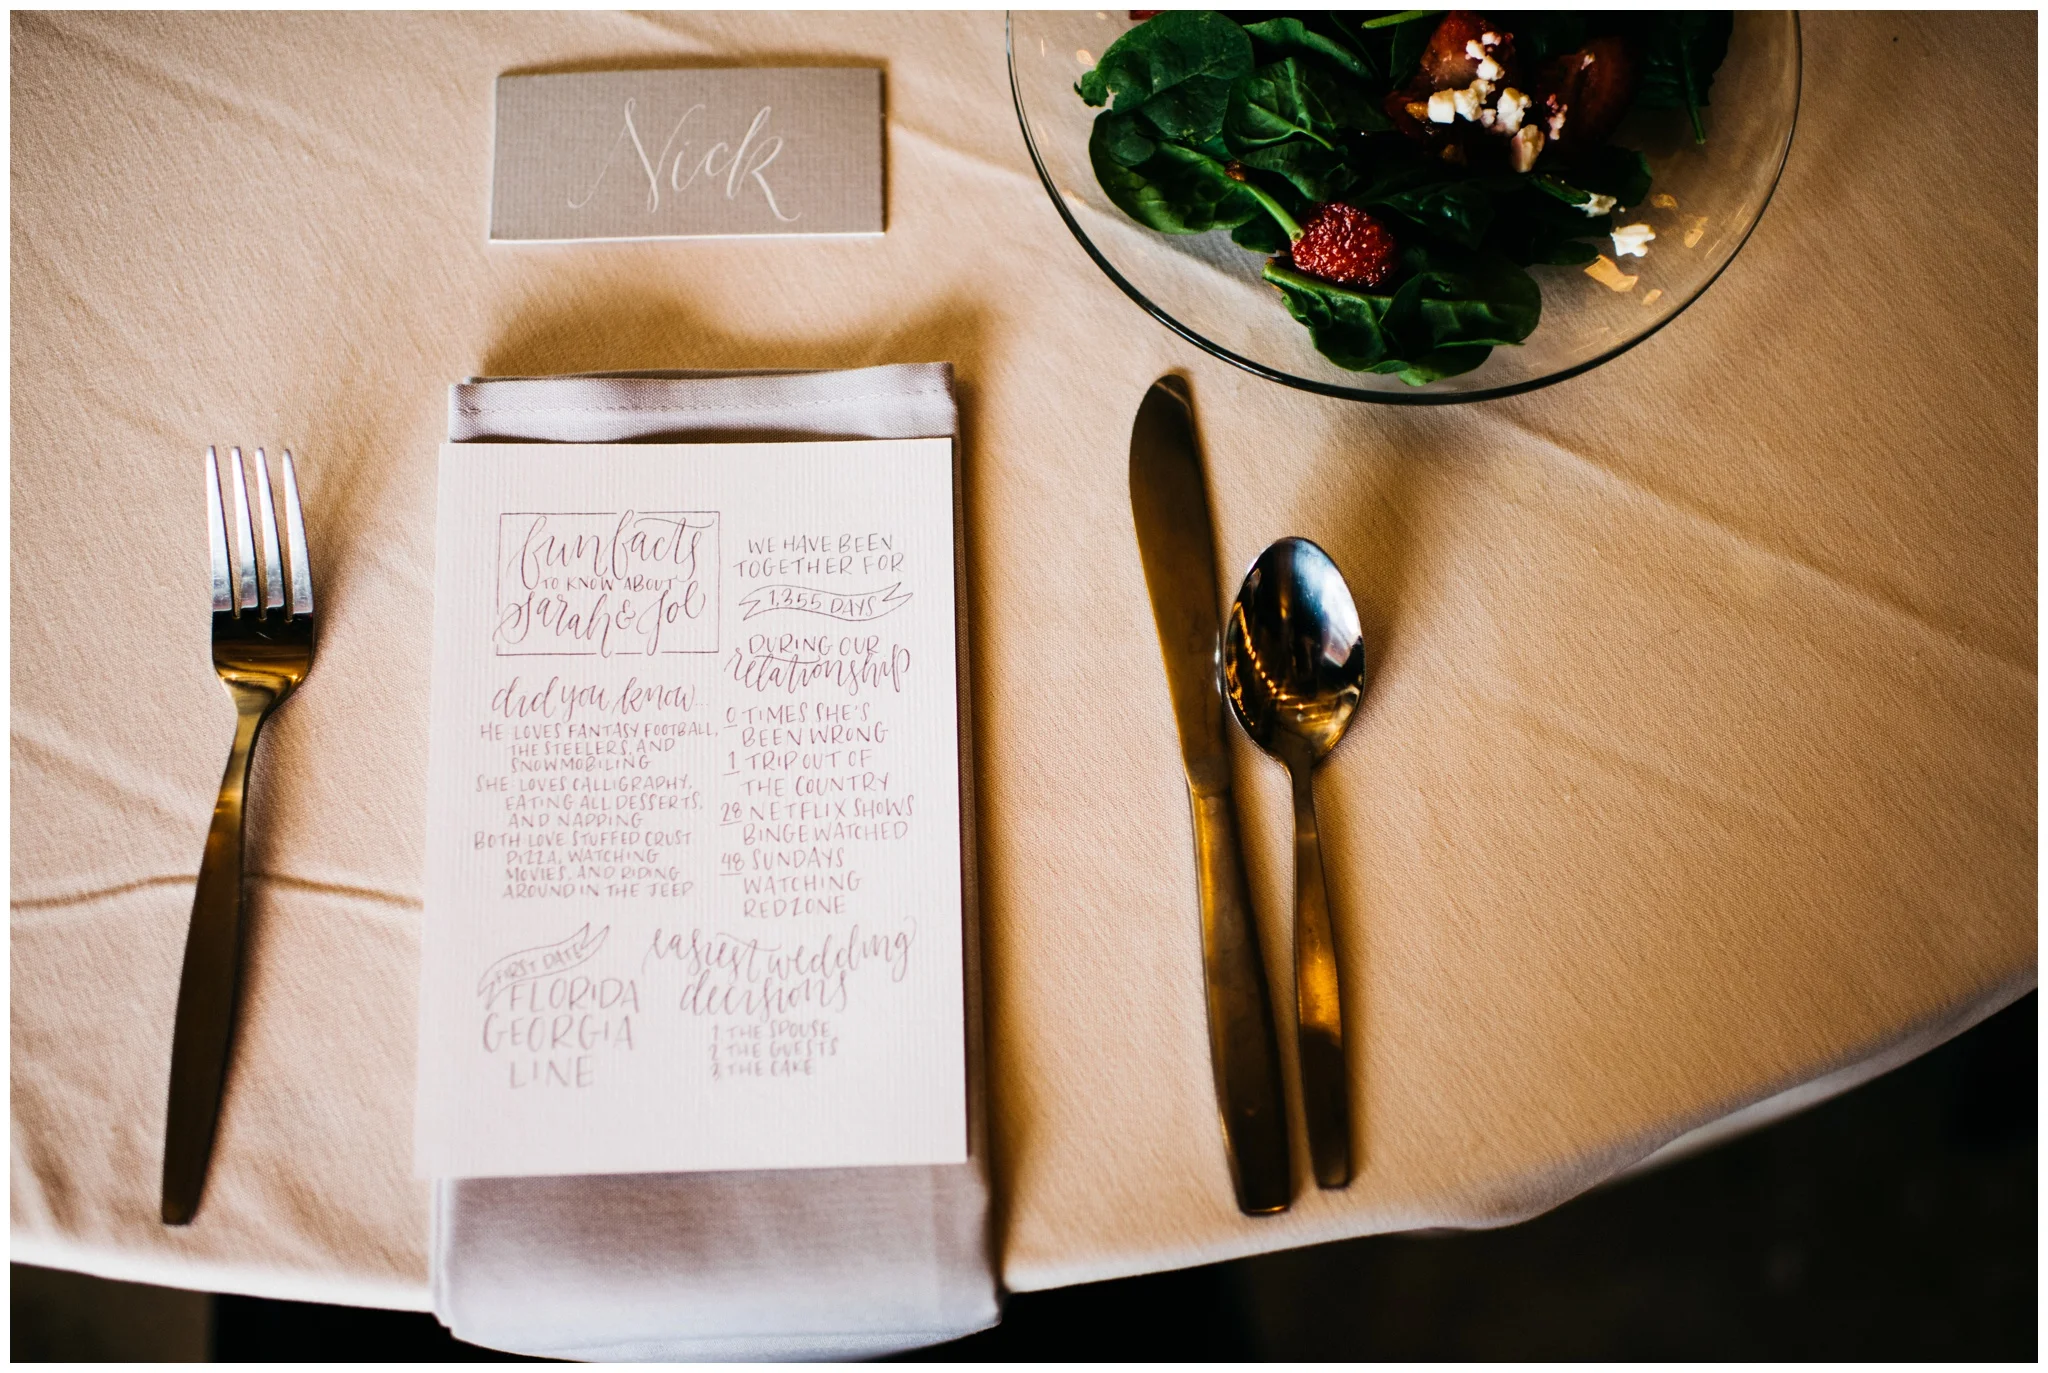 Nick
fun facts
TO KNOW ABOUT
Sarah & Sol
did you know...
HE LOVES FANTASY FOOTBALL,
THE STEELERS, AND
SNOWMOBILING
SHE LOVES CALLIGRAPHY,
EATING ALL DESSERTS,
AND NAPPING
BOTH LOVE STUFFED CRUST
PIZZA, WATCHING
MOVIES, AND RIDING
AROUND IN THE JEEP
FIRST DATE
FLORIDA
GEORGIA
LINE
WE HAVE BEEN
TOGETHER FOR
1,355 DAYS
DURING OUR
relationship
0 TIMES SHE'S
BEEN WRONG
1 TRIP OUT OF
THE COUNTRY
28 NETFLIX SHOWS
BINGEWATCHED
48 SUNDAYS
WATCHING
REDZONE
easiest wedding
decisions
1 THE SPOUSE
2 THE GUESTS
3 THE CAKE